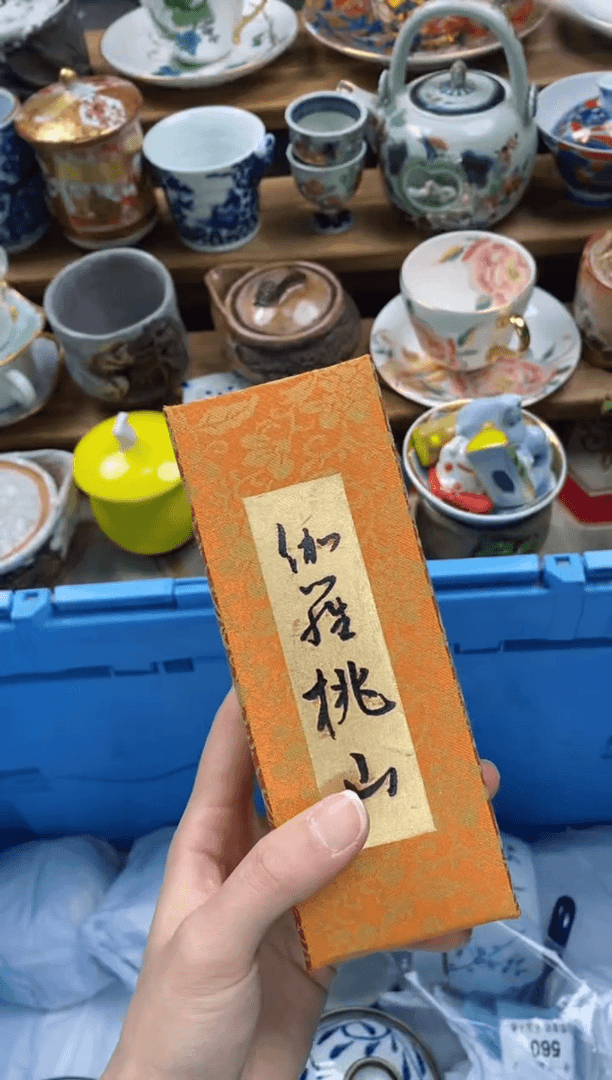 伽羅桃山
560